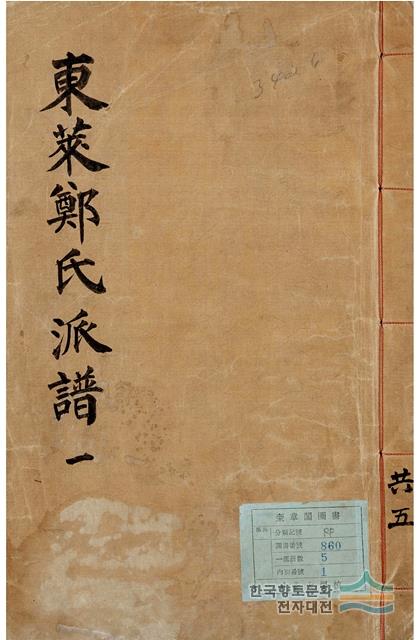 東萊鄭氏派譜 一
共五
奎章閣圖書
分類記號
圖書番號 860
一部冊數 5
內別番號 1
한국향토문화
전자대전